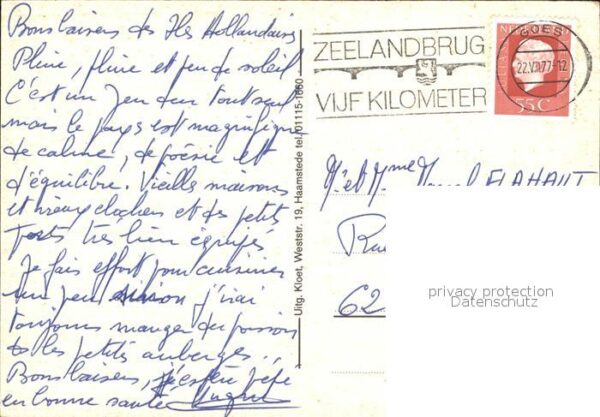 Bons baisers des Iles Hollandaises
Pluie, pluie et peu de soleil
C'est un peu dur tout seul
mais le pays est magnifique
de calme, de poésie et
d'équilibre. Vieilles maisons
et vieux clochers et des petits
ports très bien équipés
Je fais effort pour cuisiner
un peu sinon j'irai
toujours manger du poisson
ds les petites auberges..
Bons baisers, j'espère pépé
en bonne santé
Uitg. Kloet, Weststr. 19, Haamstede tel. 01115-1660
ZEELANDBRUG
VIJF KILOMETER
GOES
22.VII.77-12
NEDERLAND
55 C
Mr et Mme DELAHAUT
Ru
62
privacy protection
Datenschutz